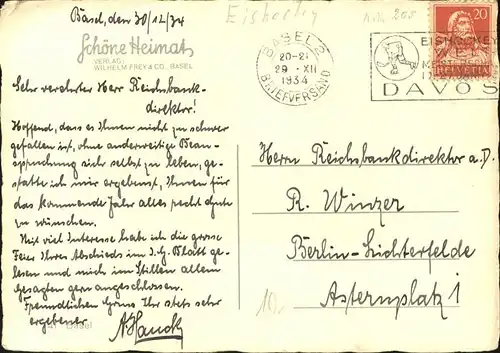 Basel, den 30/12/34
Schöne Heimat
(VERLAG)
WILHELM FREY & CO., BASEL
Sehr verehrter Herr Reichsbank-
direktor!
Hoffend, dass es Ihnen nicht zu schwer
gefallen ist, ohne anderweitige Bean-
spruchung sich selbst zu leben, ge-
statte ich mir ergebenst, Ihnen für
das kommende Jahr alles recht Gute
zu wünschen.
Mit viel Interesse habe ich die grosse
Feier Ihres Abschieds im I.G. Blatt ge-
lesen und mich im Stillen allem
Gesagten gern angeschlossen.
Freundlichen Gruss Ihr stets sehr
ergebener
A. Hauck
Basel
Eishockey
BASEL 2
20-21
29. XII
1934
BRIEFVERSAND
20
HELVETIA
EISHOCKEY
DAVOS
Herrn Reichsbankdirektor a.D.
R. Winzer
Berlin-Lichterfelde
Asternplatz 1
10.-